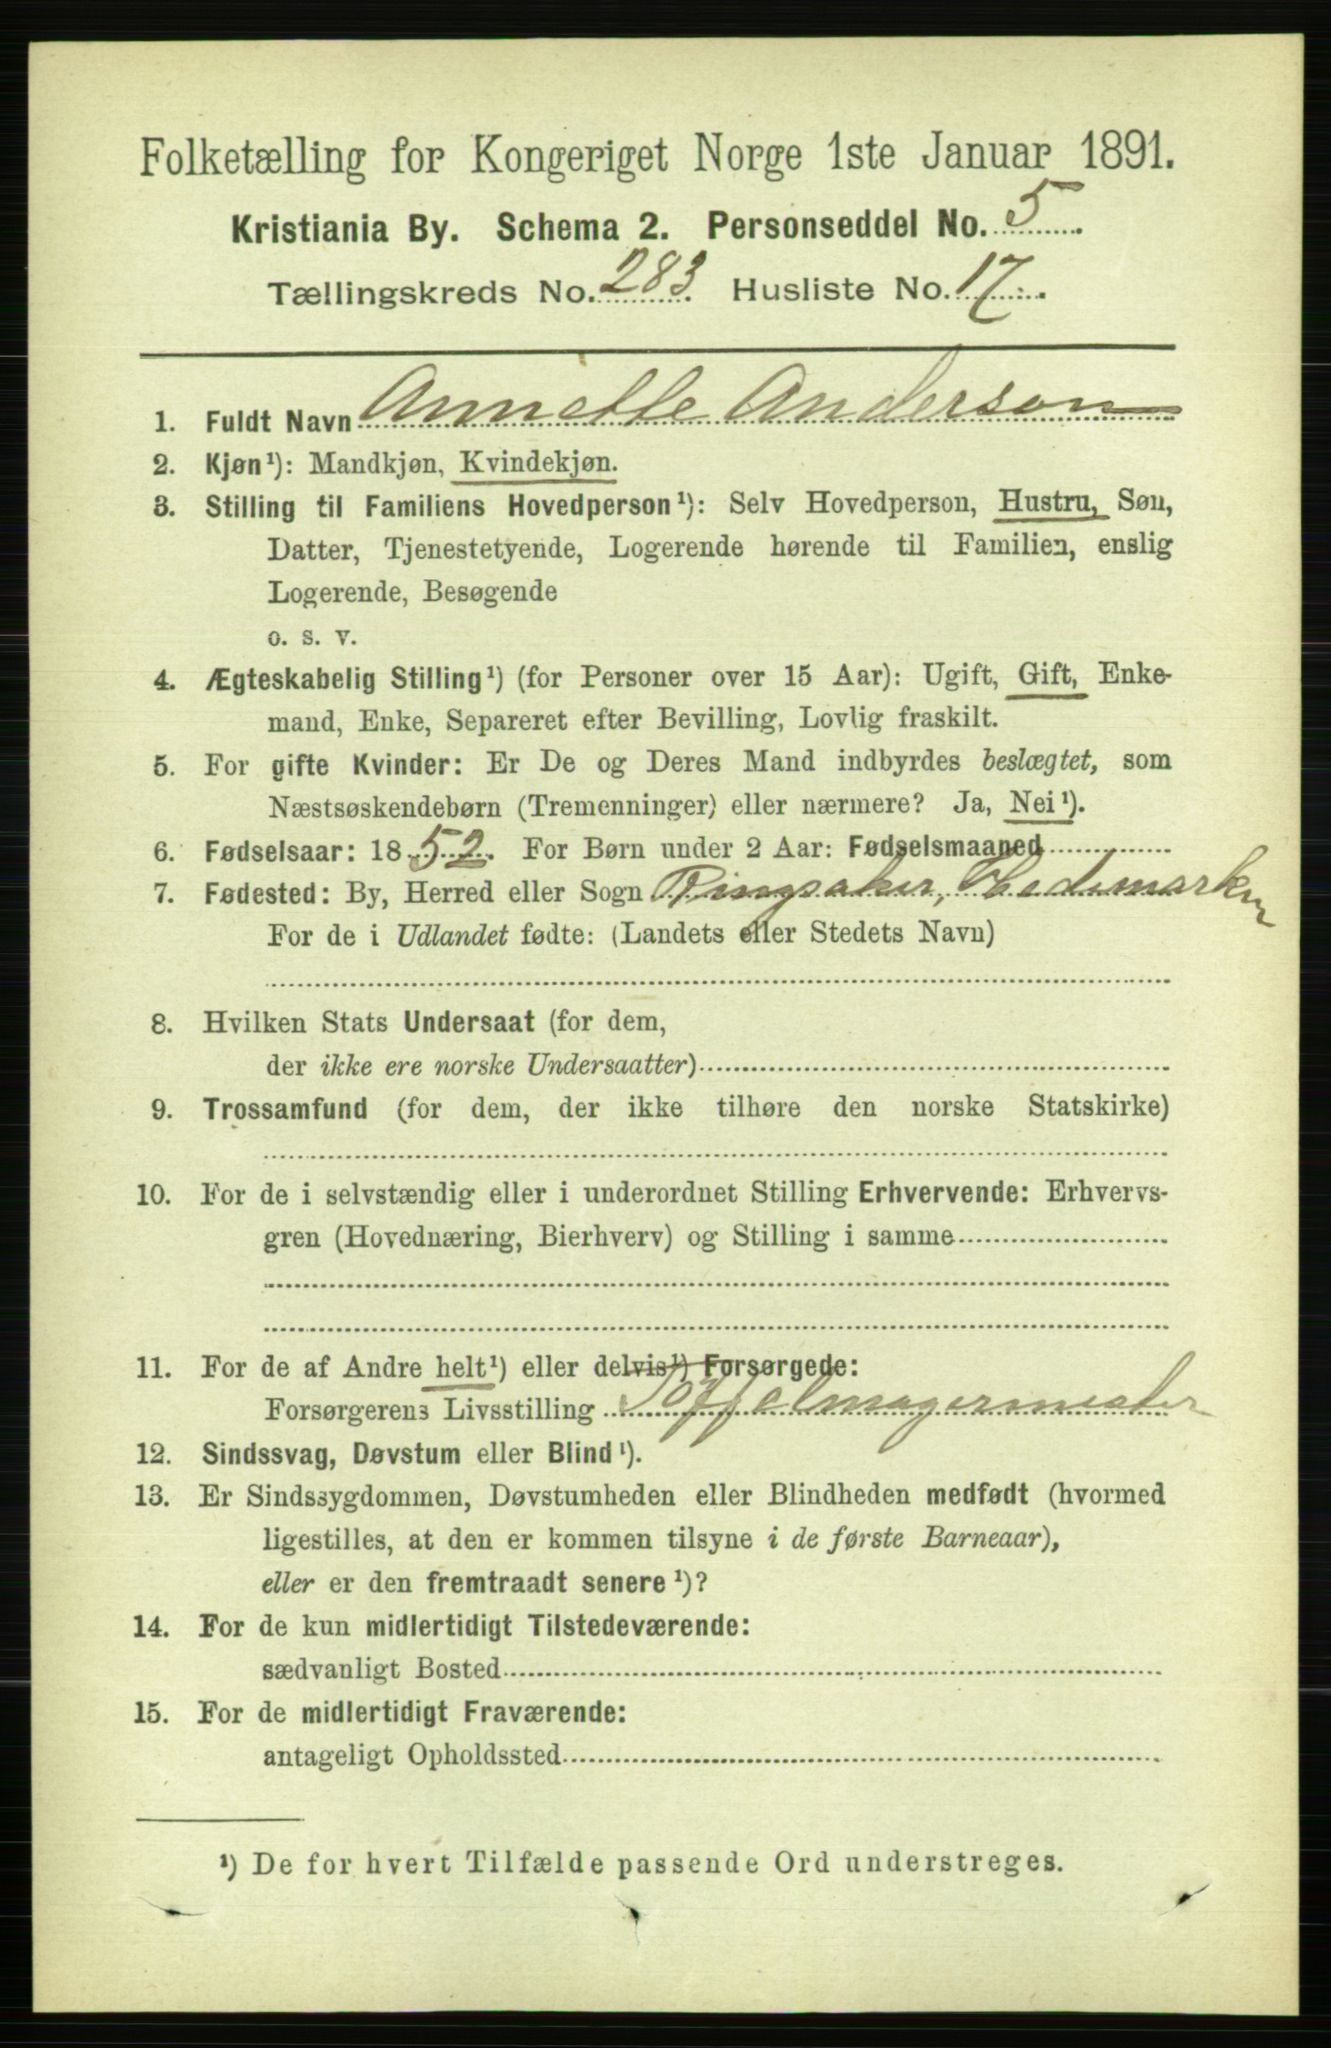 Folketælling for Kongeriget Norge 1ste Januar 1891.
Kristiania By. Schema 2. Personseddel No. 5
Tællingskreds No. 283 Husliste No. 17
1. Fuldt Navn Annette Anderson
2. Kjøn¹): Mandkjøn, Kvindekjøn.
3. Stilling til Familiens Hovedperson¹): Selv Hovedperson, Hustru, Søn,
Datter, Tjenestetyende, Logerende hørende til Familien, enslig
Logerende, Besøgende
o. s. v.
4. Ægteskabelig Stilling¹) (for Personer over 15 Aar): Ugift, Gift, Enke-
mand, Enke, Separeret efter Bevilling, Lovlig fraskilt.
5. For gifte Kvinder: Er De og Deres Mand indbyrdes beslægtet, som
Næstsøskendebørn (Tremenninger) eller nærmere? Ja, Nei¹).
6. Fødselsaar: 1852. For Børn under 2 Aar: Fødselsmaaned
7. Fødested: By, Herred eller Sogn Ringsaker, Hedemarken
For de i Udlandet fødte: (Landets eller Stedets Navn)
8. Hvilken Stats Undersaat (for dem,
der ikke ere norske Undersaatter)
9. Trossamfund (for dem, der ikke tilhøre den norske Statskirke)
10. For de i selvstændig eller i underordnet Stilling Erhvervende: Erhvervs-
gren (Hovednæring, Bierhverv) og Stilling i samme
11. For de af Andre helt¹) eller delvis¹) Forsørgede:
Forsørgerens Livsstilling Toffelmagermester
12. Sindssvag, Døvstum eller Blind¹).
13. Er Sindssygdommen, Døvstumheden eller Blindheden medfødt (hvormed
ligestilles, at den er kommen tilsyne i de første Barneaar),
eller er den fremtraadt senere¹)?
14. For de kun midlertidigt Tilstedeværende:
sædvanligt Bosted
15. For de midlertidigt Fraværende:
antageligt Opholdssted
¹) De for hvert Tilfælde passende Ord understreges.